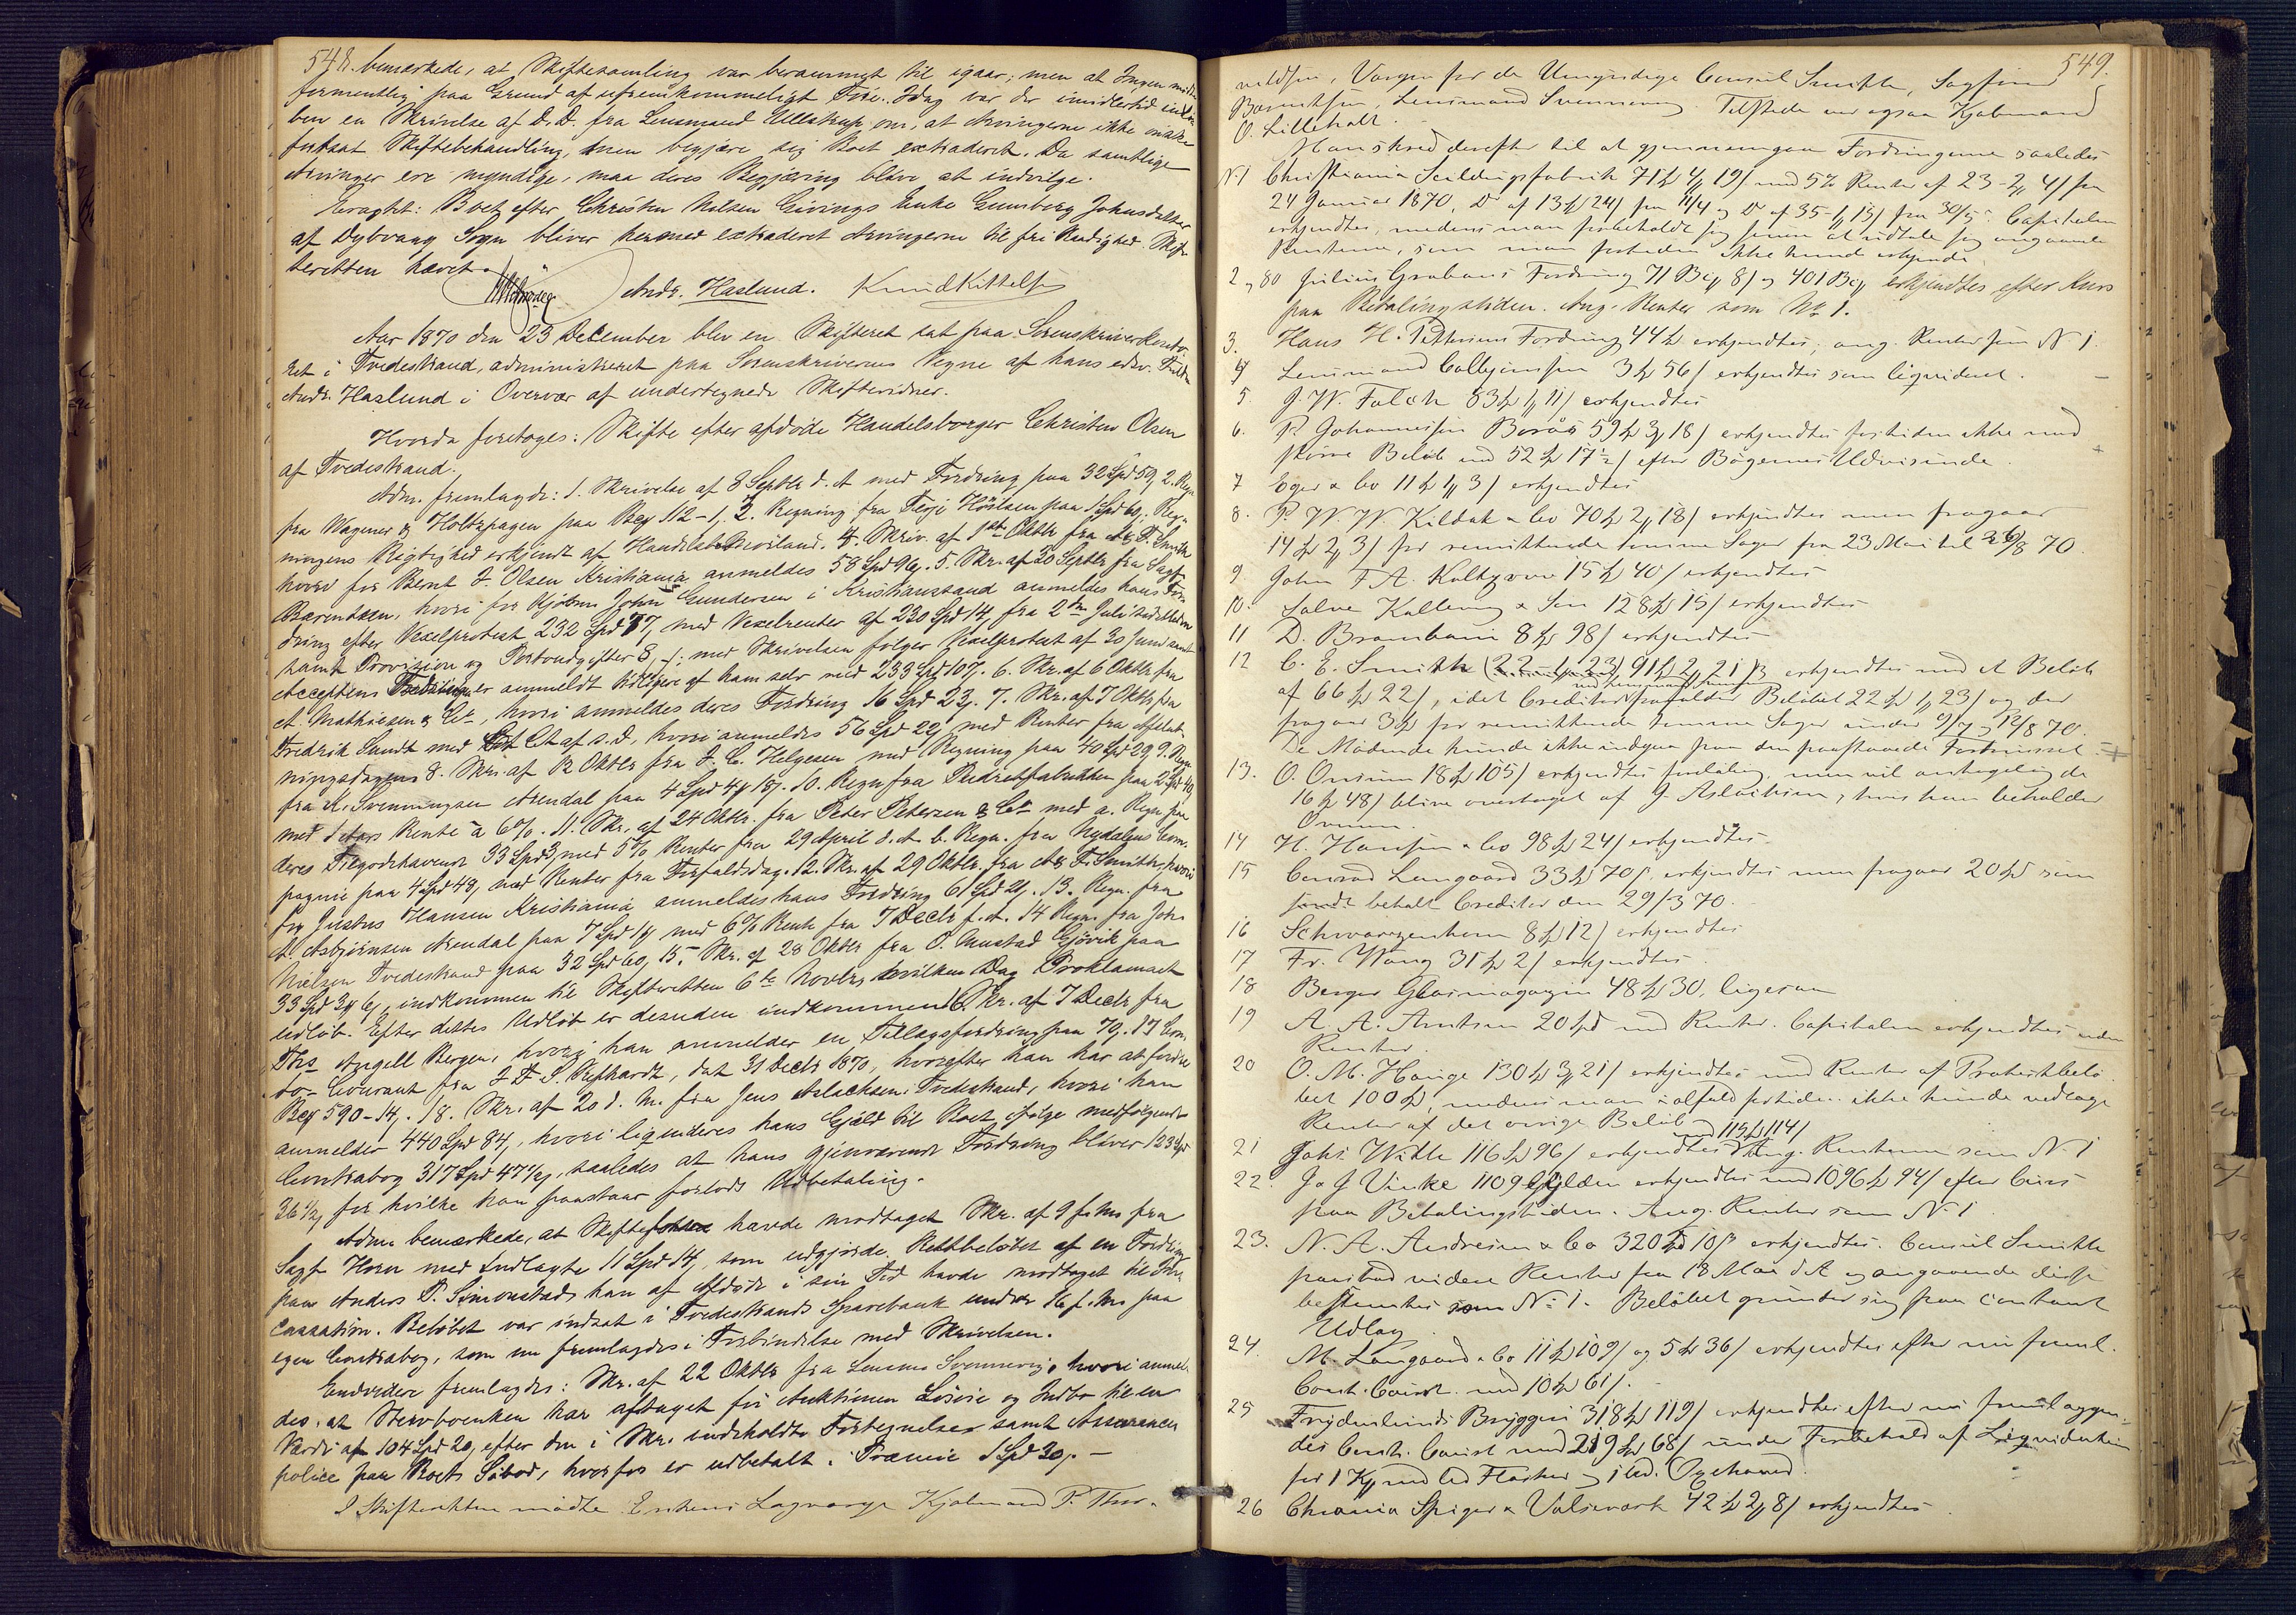 548. bemærkede, at Skiftesamling var berammet til igaar; men at Ingen mødte
formentlig paa Grund af ufremkommeligt Føre. Idag var der imidlertid indlø-
ben en Skrivelse af d. D. fra Lensmand Ullstrup om, at Arvingerne ikke ønske
fortsat Skiftebehandling, men begjære sig Boet extraderet. Da samtlige
Arvinger ere myndige, maa deres Begjæring blive at indvilge.
Eragtet: Boet efter Christen Nilsen Givings Enke Gunsberg Johnsdatter
af Dybvaag Sogn bliver hermed extraderet Arvingerne til fri Raadighed. Skifte-
teretten hævet.
Andr. Haslund. Knud Kittelsen
Aar 1870 den 23 December blev en Skifteret sat paa Sorenskriverkonto-
ret i Tvedestrand, administreret paa Sorenskriverens Vegne af hans edsv. Fuldm.
Andr. Haslund i Overvær af undertegnede Skiftevidner.
Hvorda foretoges: Skifte efter afdøde Handelsborger Christen Olsen
af Tvedestrand.
Adm. fremlagde: 1. Skrivelse af 8 Septbr d. A med Fordring paa 32 Spd 59, 2. Regn
fra Wagener & Holtzhagen paa Bc 112-1, 3. Regning fra Terje Hörlsen paa 1 Spd 60; Reg-
ningens Rigtighed erkjendt af Handelsb. Bioeland. 4. Skriv. af 1ste Oktbr fra A. F. Smith
hvori for Bernt J. Olsen Kristiania anmeldes 58 Spd 96. 5. Skr. af 20 Septbr fra Sagf.
Barentsen, hvori for Kjøbm John Gundersen i Kristianssand anmeldes hans For-
dring efter Vexelprotest 232 Spd 77, med Vexelrenter af 230 Spd 14, fra 2den Juli
samt Provision og Portoudgifter 8; med Skrivelsen følger Vexelprotest af 30 Juni samt
Acceptens Fordring er anmeldt tidligere af ham selv med 233 Spd 107. 6. Skr. af 6 Oktbr fra
A. Mathiesen & Co, hvori anmeldes deres Fordring 16 Spd 23. 7. Skr. af 7 Oktbr fra
Fredrik Sundt med Ct af s. D, hvori anmeldes 56 Spd 22 med Renter fra Afslut-
ningsdagen 8. Skr. af 12 Oktbr fra J. C. Helgesen med Regning paa 40 Spd 29, 9. Regn
fra K. Svenningsen Arendal paa 4 Spd 4 18. 10. Regn fra Pedrebfabrikken paa 2 Spd 40
med 1 Aars Rente à 6%. 11. Skr. af 24 Oktbr. fra Peter Petersen & Co med a. Regn paa
deres Tilgodehavende 33 Spd 3, med 5% Renter fra 29 April d. A. b. Regn. fra Nydalens Com-
pagnie paa 4 Spd 48, med Renter fra Forfaldsdag. 12. Skr. af 29 Oktbr. fra A. F. Smith, hvori
for Justus Hansen Kristiania anmeldes hans Fordring 61 Spd 21. 13. Regn. fra
A. Asbjørnsen Arendal paa 7 Spd 14 med 6% Rente fra 7 Decbr f. A. 14 Regn. fra John
Nielsen Tvedestrand paa 32 Spd 60, 15. Skr. af 28 Oktbr fra O. Mustad Gjøvik paa
33 Spd 34 6, indkommen til Skifteretten 6te Novbr, hvilken Dag Proklamaet
udløb. Efter dettes Udløb er desuden indkommen 16. Skr. af 7 Decbr fra
Ths Angell Bergen, hvori han anmelder en Tillægsfordring paa 70. 17 Con-
to-Courant fra J. F. S. Riefhardt, dat 31 Decbr 1870, hvorefter han har at fordre
Bc 590-14. 18. Skr. af 20 d. M. fra Jens Aslachsen Tvedestrand, hvori han
anmelder 440 Spd 84, hvori liqvideres hans Gjæld til Boet ifølge medfølgende
Contrabog 317 Spd 47½, saaledes at hans gjenværende Fordring bliver 123 Spd
36½, for hvilke han paastaar forlods Udbetaling.
Adm. bemærkede, at Skifteretten havde modtaget Skr. af 9 f. M. fra
Sagf. Horn med Indlagte 11 Spd 14, som udgjorde Restbeløbet af en Fordring
paa Anders P. Simonstad, han af Afdøde i sin Tid havde modtaget til In-
cassation. Beløbet var indsat i Tvedestrands Sparebank under 16 f. M. paa
egen Contrabog, som nu fremlagdes i Forbindelse med Skrivelsen.
Endvidere fremlagdes: Skr. af 22 Oktbr fra Lensm. Svennevig, hvori anmel-
des, at Stervboenken har aftaget før Auktionen Løsøre og Indbo til en
Værdi af 104 Spd 20, efter den i Skr. indeholdte Fortegnelse, samt Assurance-
police paa Boets Søbod, hvorfor er udbetalt i Præmie 1 Spd 30. —
I Skifteretten mødte Enkens Laugværge Kjøbmand P. Thor-
549.
valdsen, Værgen for de Umyndige Consul Smith, Sagfører
Barentsen, Lensmand Svennevig. Tilstede var ogsaa Kjøbmand
O. Lilleholt.
Man skred derefter til at gjennemgaa Fordringerne saaledes
N. 1 Christiania Seildugsfabrik 71 Spd 4, 19 med 5% Renter af 23-2, 4 fra
24 Januar 1870, Do af 13 Spd 24 fra 11/4 og Do af 35-1, 15 fra 30/5. Capitalen
erkjendtes, medens man forbeholdt sig senere at udtale sig angaaende
Renterne, som man fortiden ikke kunde erkjende.
2, 80 Julius Grabaus Fordring 71 Bc 8 og 401 Bc erkjendtes efter Kurs
paa Betalingstiden. Ang. Renter som No 1.
3. Hans H. Petersens Fordring 44 Spd erkjendtes, ang. Renter som N 1.
4 Lensmand Callbjørnsen 3 Spd 56 erkjendtes som liqvideret.
5. J. W. Falch 83 Spd 1, 11 erkjendtes
6. P. Johannesen Borøs 59 Spd 3, 18 erkjendtes fortiden ikke med
større Beløb end 52 Spd 17½ efter Bøgernes Udvisende.
7 Eger & Co 11 Spd 1, 3 erkjendtes
8. P. W. W. Kildal & Co 70 Spd 2, 18 erkjendtes men fragaar
14 Spd 2, 3 for remitterede tomme Sager fra 23 Mai til 26/8 70.
9. John F. A. Koltzow 15 Spd 40 erkjendtes
10. Salve Kallevig & Søn 128 Spd 15 erkjendtes
11 D. Brambani 8 Spd 98 erkjendtes
12 C. E. Smith (22-1, 23) 91 Spd 2, 21 erkjendtes med et Beløb
af 66 Spd 22, idet Creditor frafalder Beløbet 22 Spd 1, 23 og der
fragaar 3 Spd for remitterede tomme Sager under 9/7 og 12/8 70.
De Mødende kunde ikke indgaa paa den paastaaede Fortrinsret.
13. O. Onsum 18 Spd 105 erkjendtes foreløbig, men vil antagelig de
16 Spd 48 blive overtaget af J. Aslachsen, hvis han beholder
Ovnen.
14 H. Hansen & Co 98 Spd 24 erkjendtes
15 Conrad Langaard 33 Spd 70, erkjendtes men fragaar 20 Spd som
sendt betalt Creditor den 29/3 70.
16 Schwarzenhorn 8 Spd 12 erkjendtes
17 Fr. Wang 31 Spd 2 erkjendtes.
18 Berger Glasmagazin 48 Spd 30, ligesaa
19 A. A. Arntsen 20 Spd med Renter. Capitalen erkjendtes uden
Renter.
20 O. M. Hauge 130 Spd 3, 21 erkjendtes med Renter af Protestbelø-
bet 100 Spd, medens man ialfald fortiden ikke kunde vedtage
Renter af det øvrige Beløb
21 Johs Witte 116 Spd 96 erkjendtes med 115 Spd 114. Ang. Renterne som N. 1
22. J & J Vinke 1109 Gylden erkjendtes med 1096 Spd 94 efter Curs
paa Betalingstiden. Ang. Renter som N. 1
23. N. A. Andresen & Co 320 Spd 10 erkjendtes. Consul Smith
paastod videre Renter fra 18 Mai d A og angaaende disse
bestemtes som No 1. Beløbet grunder sig paa contant
Udlæg.
24. M. Langaard & Co 11 Spd 109 og 5 Spd 36 erkjendtes efter nu freml.
Cont. Courst. med 10 Spd 61.
25 Frydenlunds Bryggeri 318 Spd 119 erkjendtes efter nu fremlaggen-
des Conto Courant med 219 Spd 68 under Forbehold af Liqvidation
for 1 K med Flasker
26 Chrania Spiger & Valseværk 42 Spd 2, 8 erkjendtes.